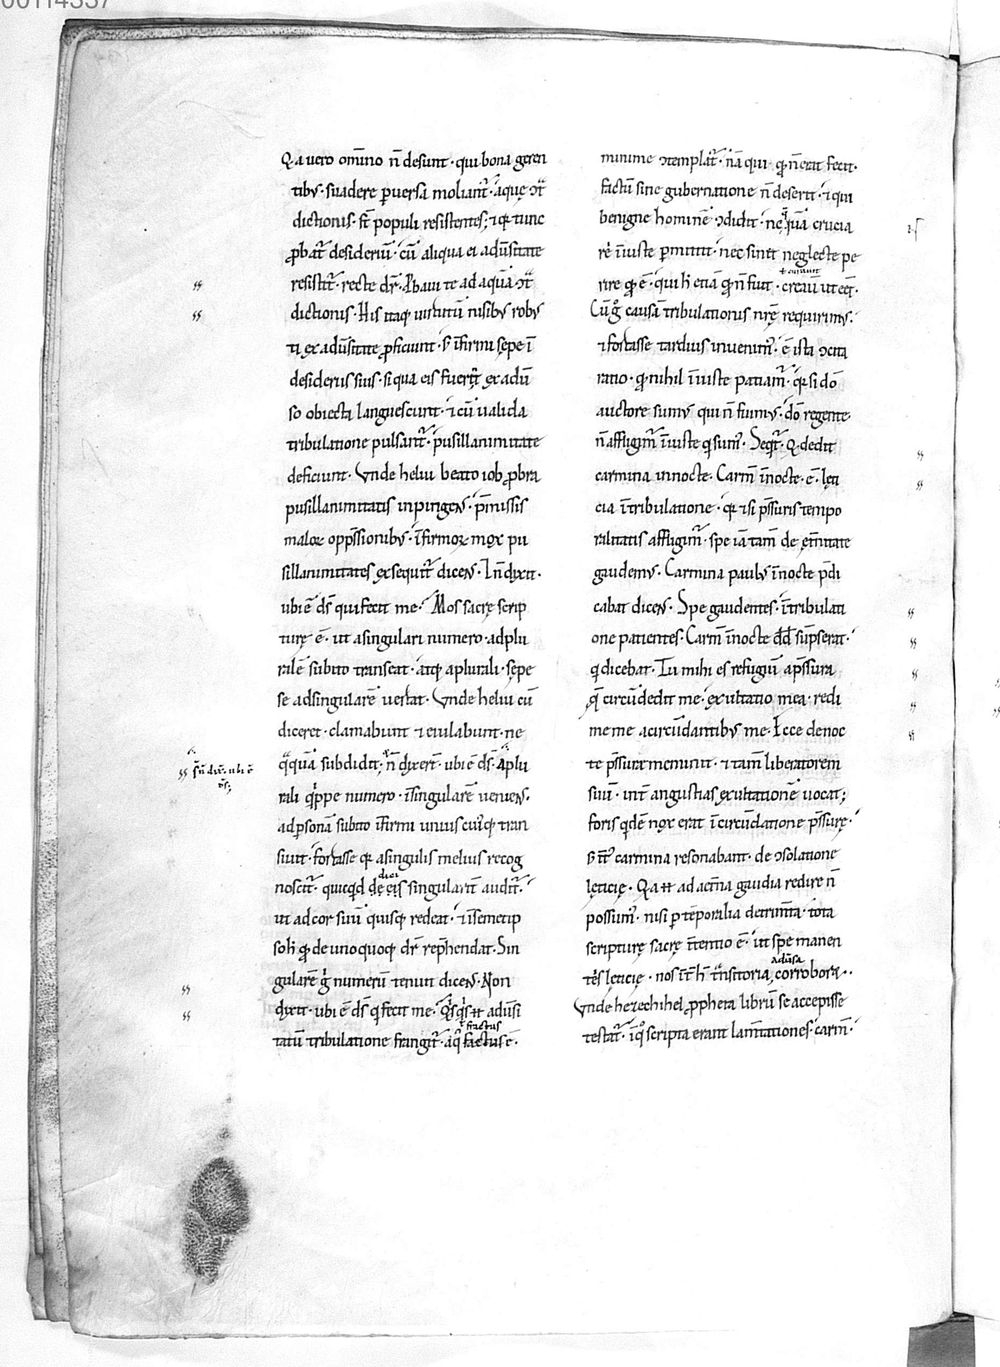 Qa uero om̄ino n̄ desunt · qui bona geren
tibꝰ · suadere ꝑuersa moliant᷑ · aq̄ue ↄt᷑
dictionis · st̄ populi resistentes ; ⁊ qꝛ tunc
ꝓbat᷑ desideriū · cū aliqua ei aduersitate
resistit᷑ · recte dr̄ · Ꝓbaui te ad aquā ↄt᷑
dictionis · His itaqꝫ uirtutū nisibꝰ robꝰ
ti ex adūsitate ꝓficiunt · s̄ īfirmi sepe ī
desideriis suis · si qua eis fuer̄t ex adū
so obiecta languescunt · ⁊ cū ualida
tribulatione pulsant᷑ · pusillanimitate
deficiunt · Vnde heliu beato iob ꝓbra
pusillanimitatis inpingens · p̄missis
maloꝝ opp̄ssionibꝰ · īfirmoꝝ mox pu
sillanimitates exsequit᷑ dicens · In̄ dixit ·
ubi ē ds̄ qui fecit me · Mos sacrę scrip
turę ē · ut a singulari numero · ad plu
ralē subito transeat · atqꝫ a plurali · sepe
se ad singularē uertat · Vnde heliu cū
diceret · clamabunt ⁊ eiulabunt · ne
q̄quā subdidit ; n̄ dixert᷑ · ubi ē ds̄ · A plu
sꝫn̄ dix̄ · ubi ē
ds̄ ;
rali q̄ppe numero · ī singularē ueniens ·
ad ꝑsonā subito īfirmi unius cuiꝰqꝫ tran
siuit · fortasse qꝛ a singulis melius recog
noscit᷑ · quicq̄d de eis singularit̄ audit᷑ ·
dici
ut ad cor suū quisqꝫ redeat · ⁊ ī semetip
soh̄ qđ de uno quoqꝫ dr̄ rep̄hendat · Sin
gularē ḡ numerū tenuit dicens · Non
dixit · ubi ē ds̄ q̄ fecit me · Q̄sq̄s ⁊⁊ adūsi
tatū tribulatione frangit᷑ · a q̄ factus ē ·
ł fractus
minime ↄtemplat᷑ · nā qui qđ n̄ erat fecit ·
factū sine gubernatione n̄ deserit · ⁊ qui
benigne hominē ↄdidit · neq̄quā crucia
rē īiuste ꝑmittit · nec sinit neglecte pe
rire qđ ē · qui h̄ etiā qđ n̄ fuit · creauit ut eēt ·
Cūqꝫ causā tribulationis nr̄ę requirimꝰ ·
⁊ fortasse tardius inuenimꝰ · ē ista ↄcita
ratio · qđ nihil īiuste patiam᷑ · qꝛ si dō
auctore sumꝰ qui n̄ fuimꝰ · dō regente
n̄ affligim᷑ īiuste qi sumꝰ · Seqit᷑ · Q̄ dedit
carmina in nocte · Carm̄ ī nocte · ē · lęti
cia ī tribulatione · qꝛ ⁊si p̄ssuris tempo
ralitatis affligim᷑ · spe iā tam̄ de et̄nitate
gaudemꝰ · Carmina paulꝰ ī nocte p̄di
cabat dicens · Spe gaudentes · ī tribulati
one patientes · Carm̄ ī nocte dd̄ sūpserat ·
qi dicebat · Tu mihi es refugiū a p̄ssura
q̄ circūdedit me · exultatio mea · redi
me me a circūdantibꝰ me · Ecce de noc
te p̄ssurā meminit · ⁊ tam̄ liberatorem
suū · int̄ angustias exultationē uocat ;
foris qidē nox erat ī circūdatione p̄ssurę ·
s̄ īt᷑ carmina resonabant · de ↄsolatione
lęticię · Qa ⁊⁊ ad æt̄na gaudia redire n̄
possumꝰ · nisi ꝑ tēporalia detrim̄ta · tota
scripturę sacrę īt̄entio ē · ut spe manen
tis lęticię · nos īt᷑ h̄ t̄nsitoria, corrobora ·
adūsa
Vnde hezechihel ꝓpheta librū se accepisse
testat᷑ · ī qo scripta erant lam̄tationes · carm̄ ·